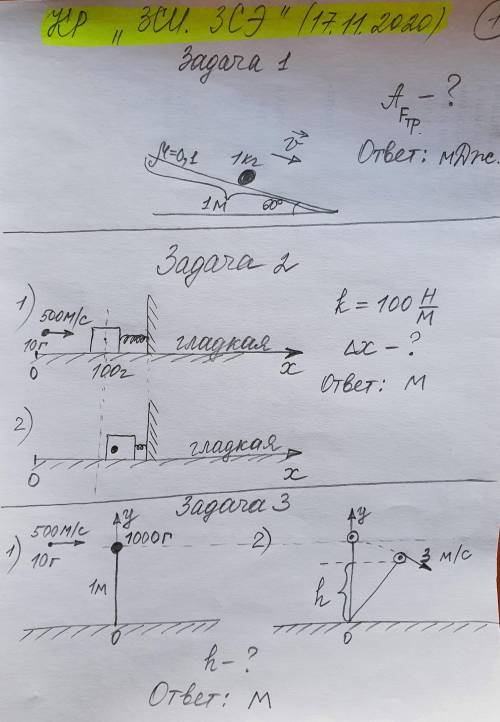 КР „ЗСИ. ЗСЭ" (17.11.2020)
1
Задача 1
A Fтр. - ?
Ответ: мДж.
μ=0,1
1кг
v
1м
60°
Задача 2
1)
500м/с
10г
100г
гладкая
0
x
k = 100 Н/м
Δx - ?
Ответ: м
2)
гладкая
0
x
Задача 3
1)
500м/с
10г
y
1000г
1м
0
2)
y
3 м/с
h
0
h - ?
Ответ: м